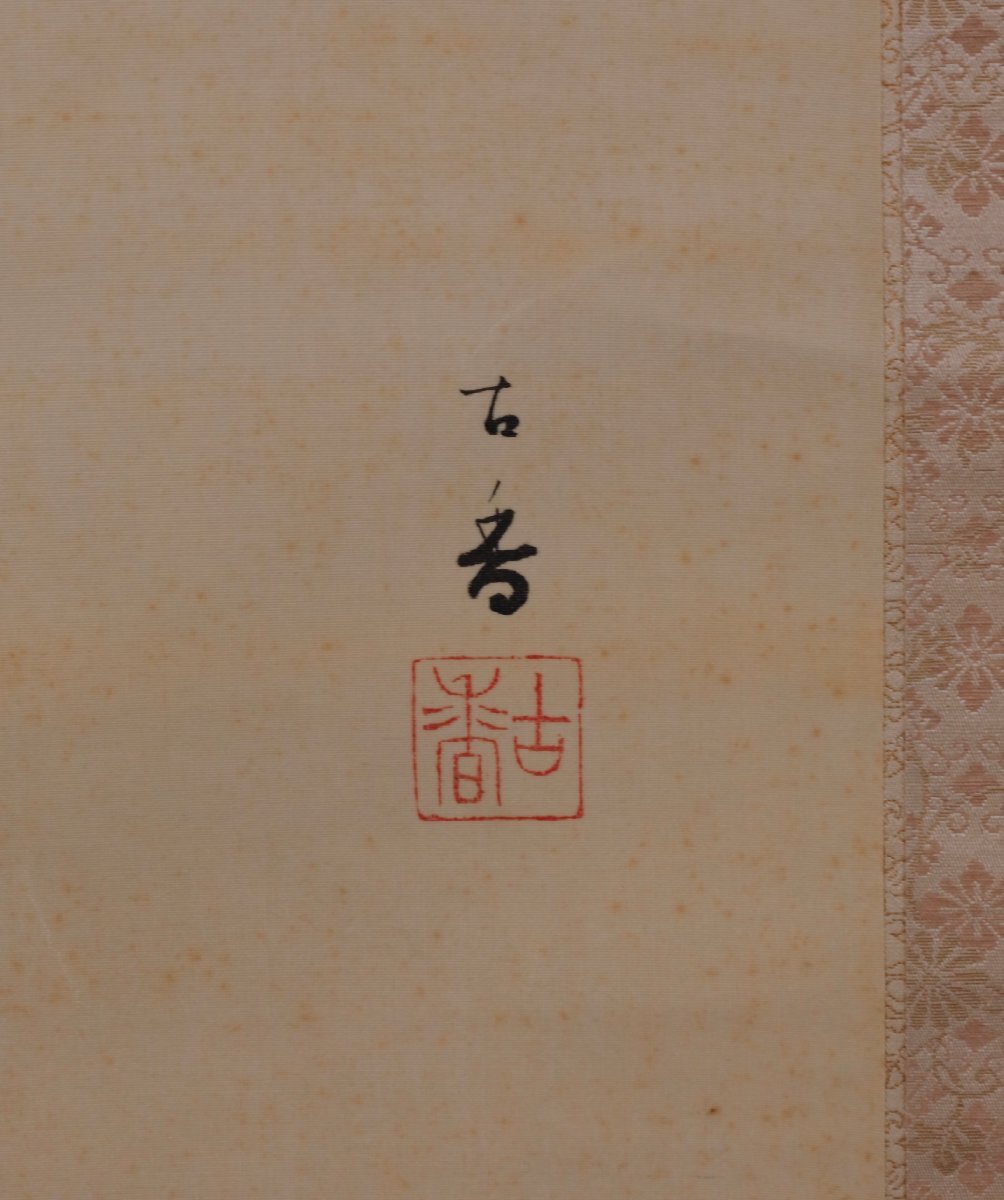 古香
古香